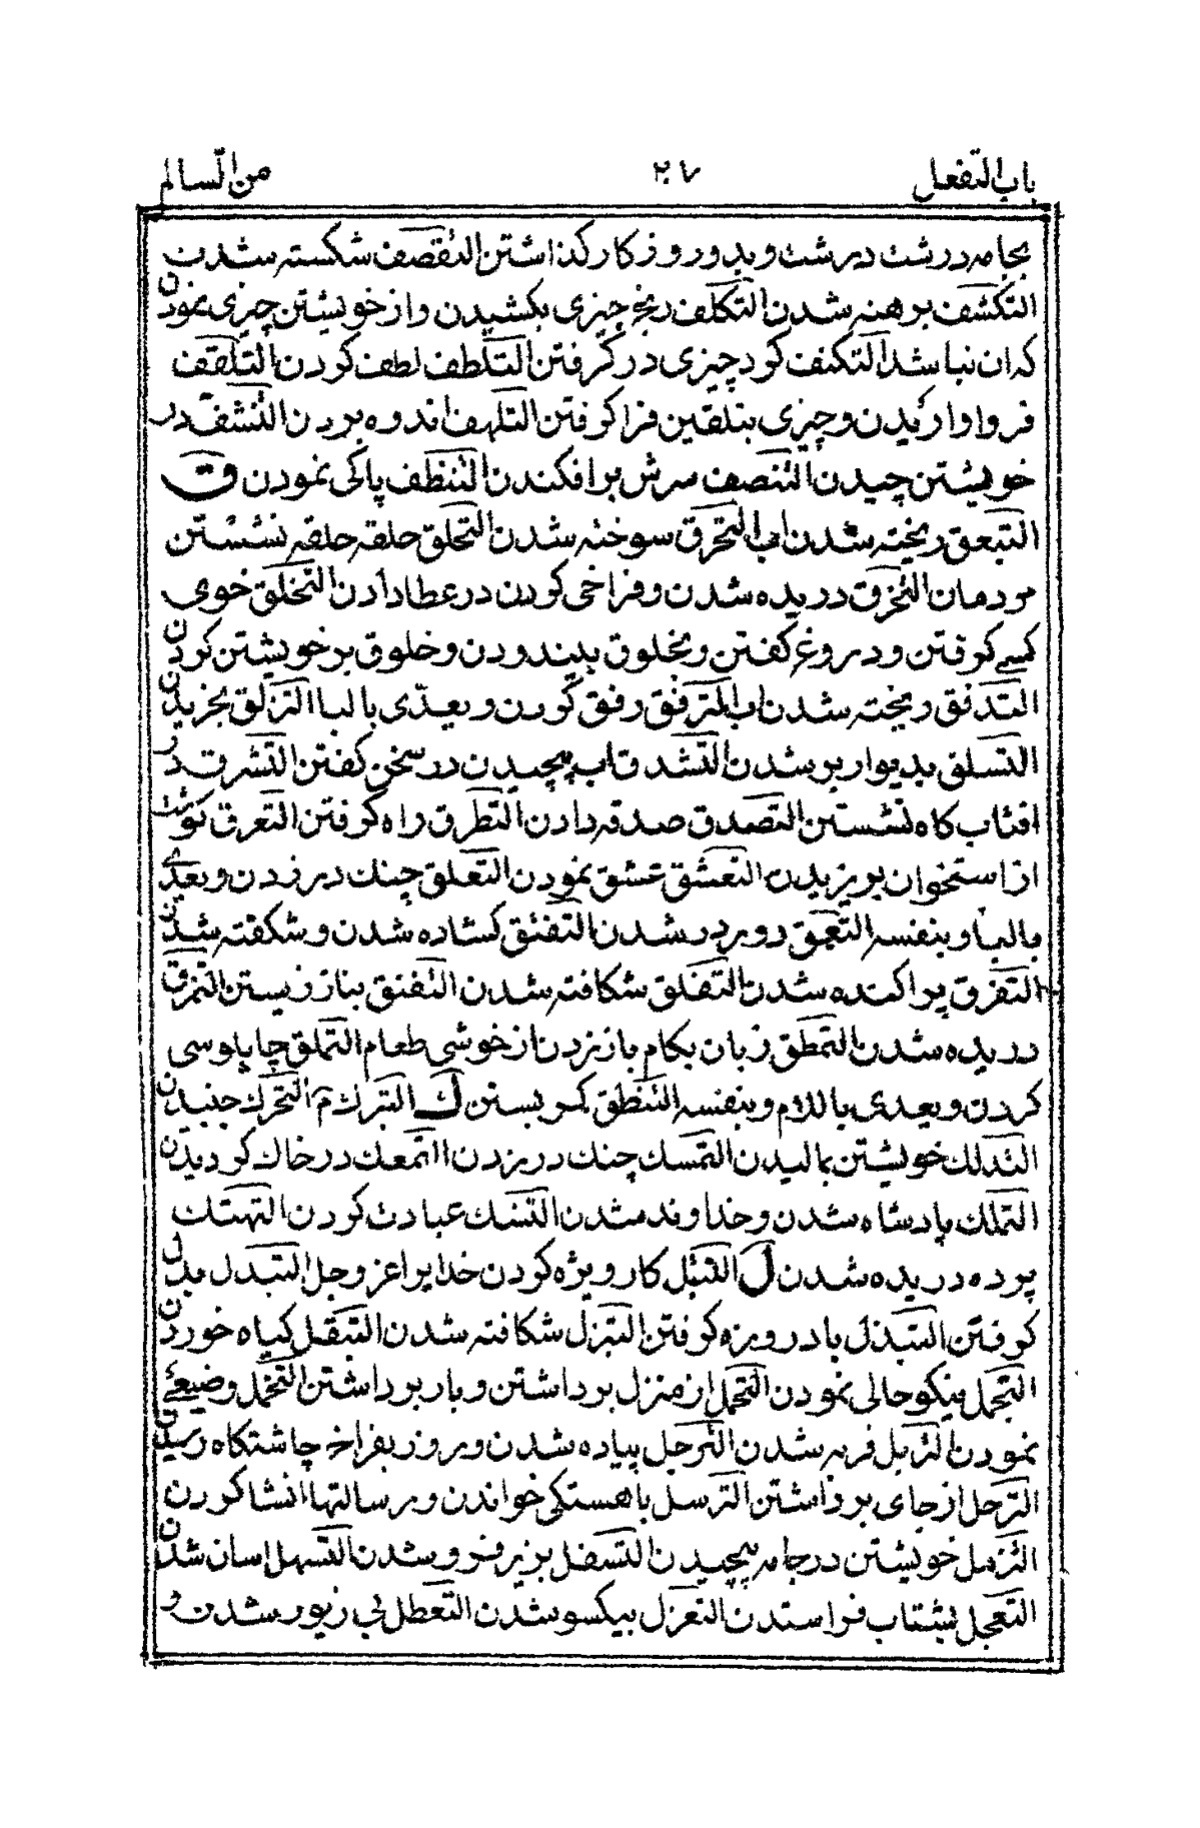 باب التفعل ۲۰۷ من السالم
بجامه درشت درشت و بد و روزكار كذاشتن التقصف شكسته شدن
التكشف برهنه شدن التكلف رنج چيزى بكشيدن و از خويشتن چيزى نمودن
كه ان نباشد التكنف كرد چيزى در كرفتن التلطف لطف كردن التلقف
فرو اواريدن و چيزى بتلقين فرا كرفتن التلهف اندوه بردن التنشف در
خويشتن چيدن التنصف سرش برافكندن التنظف پاكى نمودن ق
التبعق ريخته شدن اب التحرق سوخته شدن التحلق حلقه حلقه نشستن
مردمان التخرق دريده شدن و فراخى كردن در عطا دادن التخلق خوى
كسے كرفتن و دروغ كفتن و بخلوق بيندودن و خلوق بر خويشتن كردن
التدفق ريخته شدن اب الترفق رفق كردن و يعدّى بالبا التزلق بخزيدن
التسلق بديوار بر شدن التشدق اب پيچيدن در سخن كفتن التشرق در
افتاب كاه نشستن التصدق صدقه دادن التطرق راه كرفتن التعرق كوشت
از استخوان بريزيدن التعشق عشق نمودن التعلق چنك در زدن و يعدى
بالبا و بنفسه التعمق دور در شدن التفتق كشاده شدن و شكفته شدن
التفرق پراكنده شدن التفلق شكافته شدن التفنق بناز زيستن التمزق
دريده شدن التمطق زبان بكام باز زدن از خوشى طعام التملق چاپلوسى
كردن و يعدى باللام و بنفسه التنطق كمر بستن ك التبرك م التحرك جنبيدن
التدلك خويشتن بماليدن التمسك چنك در زدن التمعك در خاك كرديدن
التملك پادشاه شدن و خداوند شدن التنسك عبادت كردن التهتك
پرده دريده شدن ل التبتل كار ويژه كردن خدايرا عز و جل التبدل بدل
كرفتن التبذل باد روزه كرفتن التبزل شكافته شدن التبقل كياه خوردن
التجمل نيكو حالى نمودن التحمل از منزل برداشتن و بار برداشتن التخمل وضيعے
نمودن التربل فربه شدن الترجل پياده شدن و روز بفراخ چاشتكاه رسيدن
الترحل از جاى برداشتن الترسل باهستكى خواندن و رسالتها انشا كردن
التزمل خويشتن در جامه پيچيدن التسفل بزير فرو شدن التسهل اسان شدن
التعجل بشتاب فراستدن التعزل بيكسو شدن التعطل بى زيور شدن و